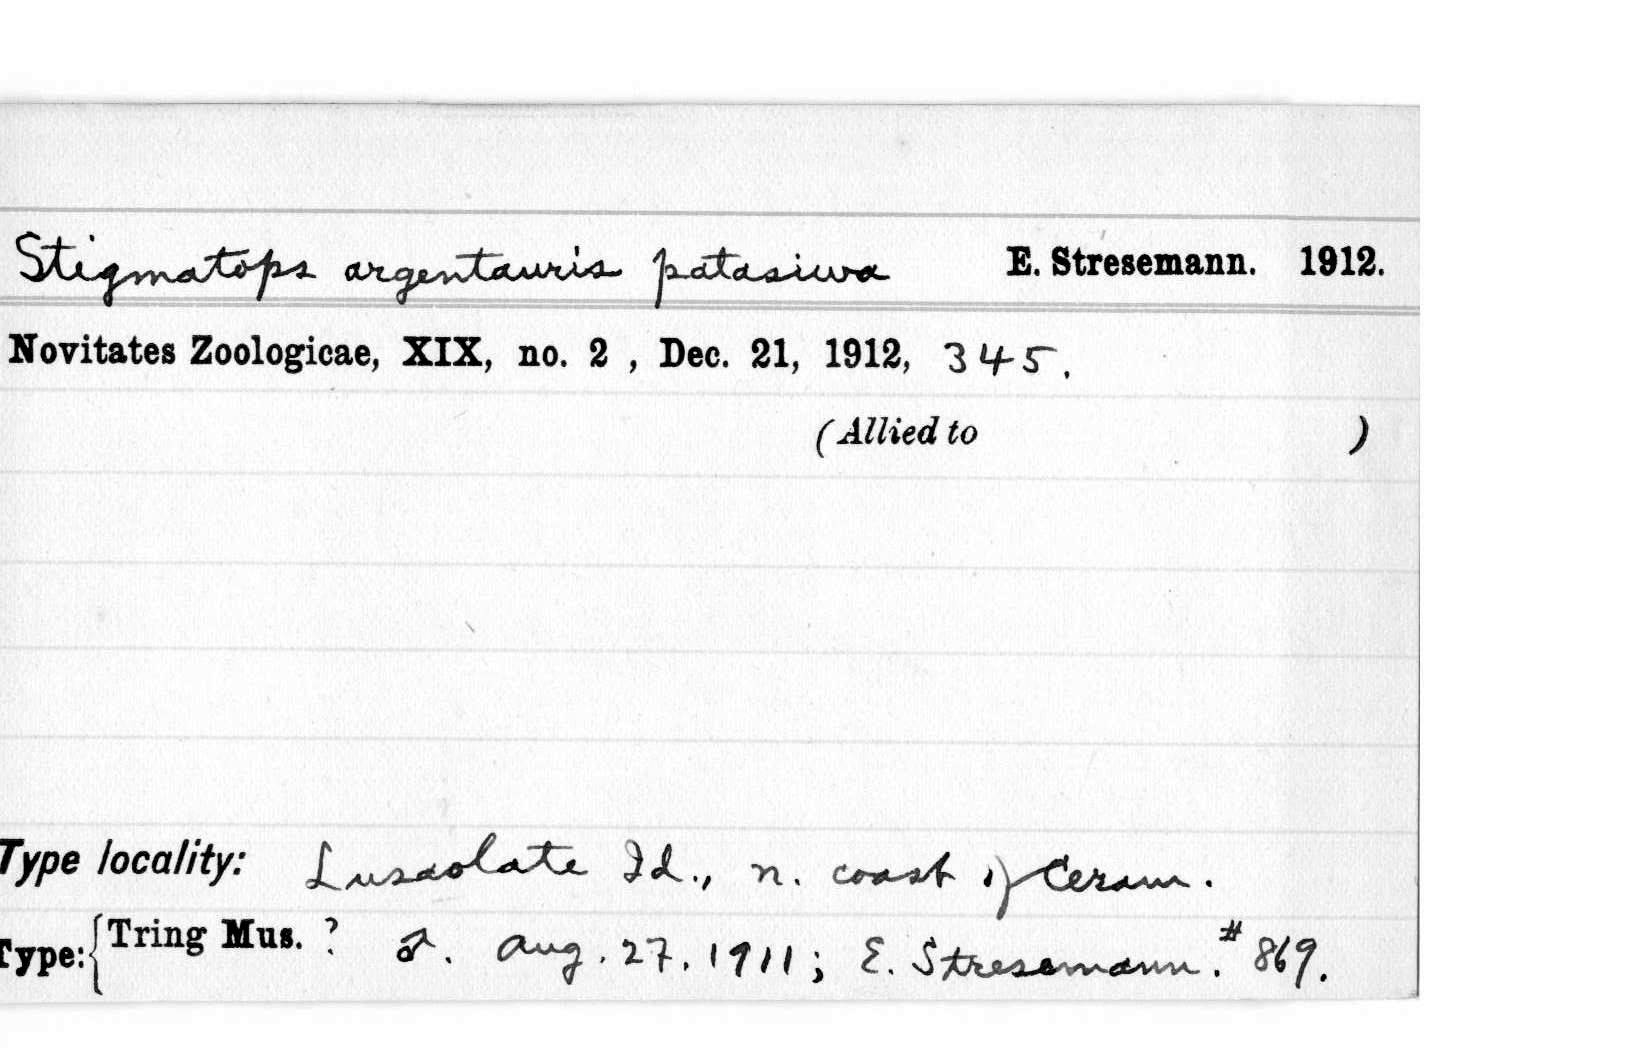 Stigmatops argentauris patasiwa E. Stresemann. 1912.
Novitates Zoologicae, XIX, no. 2 , Dec. 21, 1912, 345.
(Allied to )
Type locality: Lusaolate Id., n. coast of Ceram.
Type: {Tring Mus. ? ♂. Aug. 27. 1911; E. Stresemann. # 869.